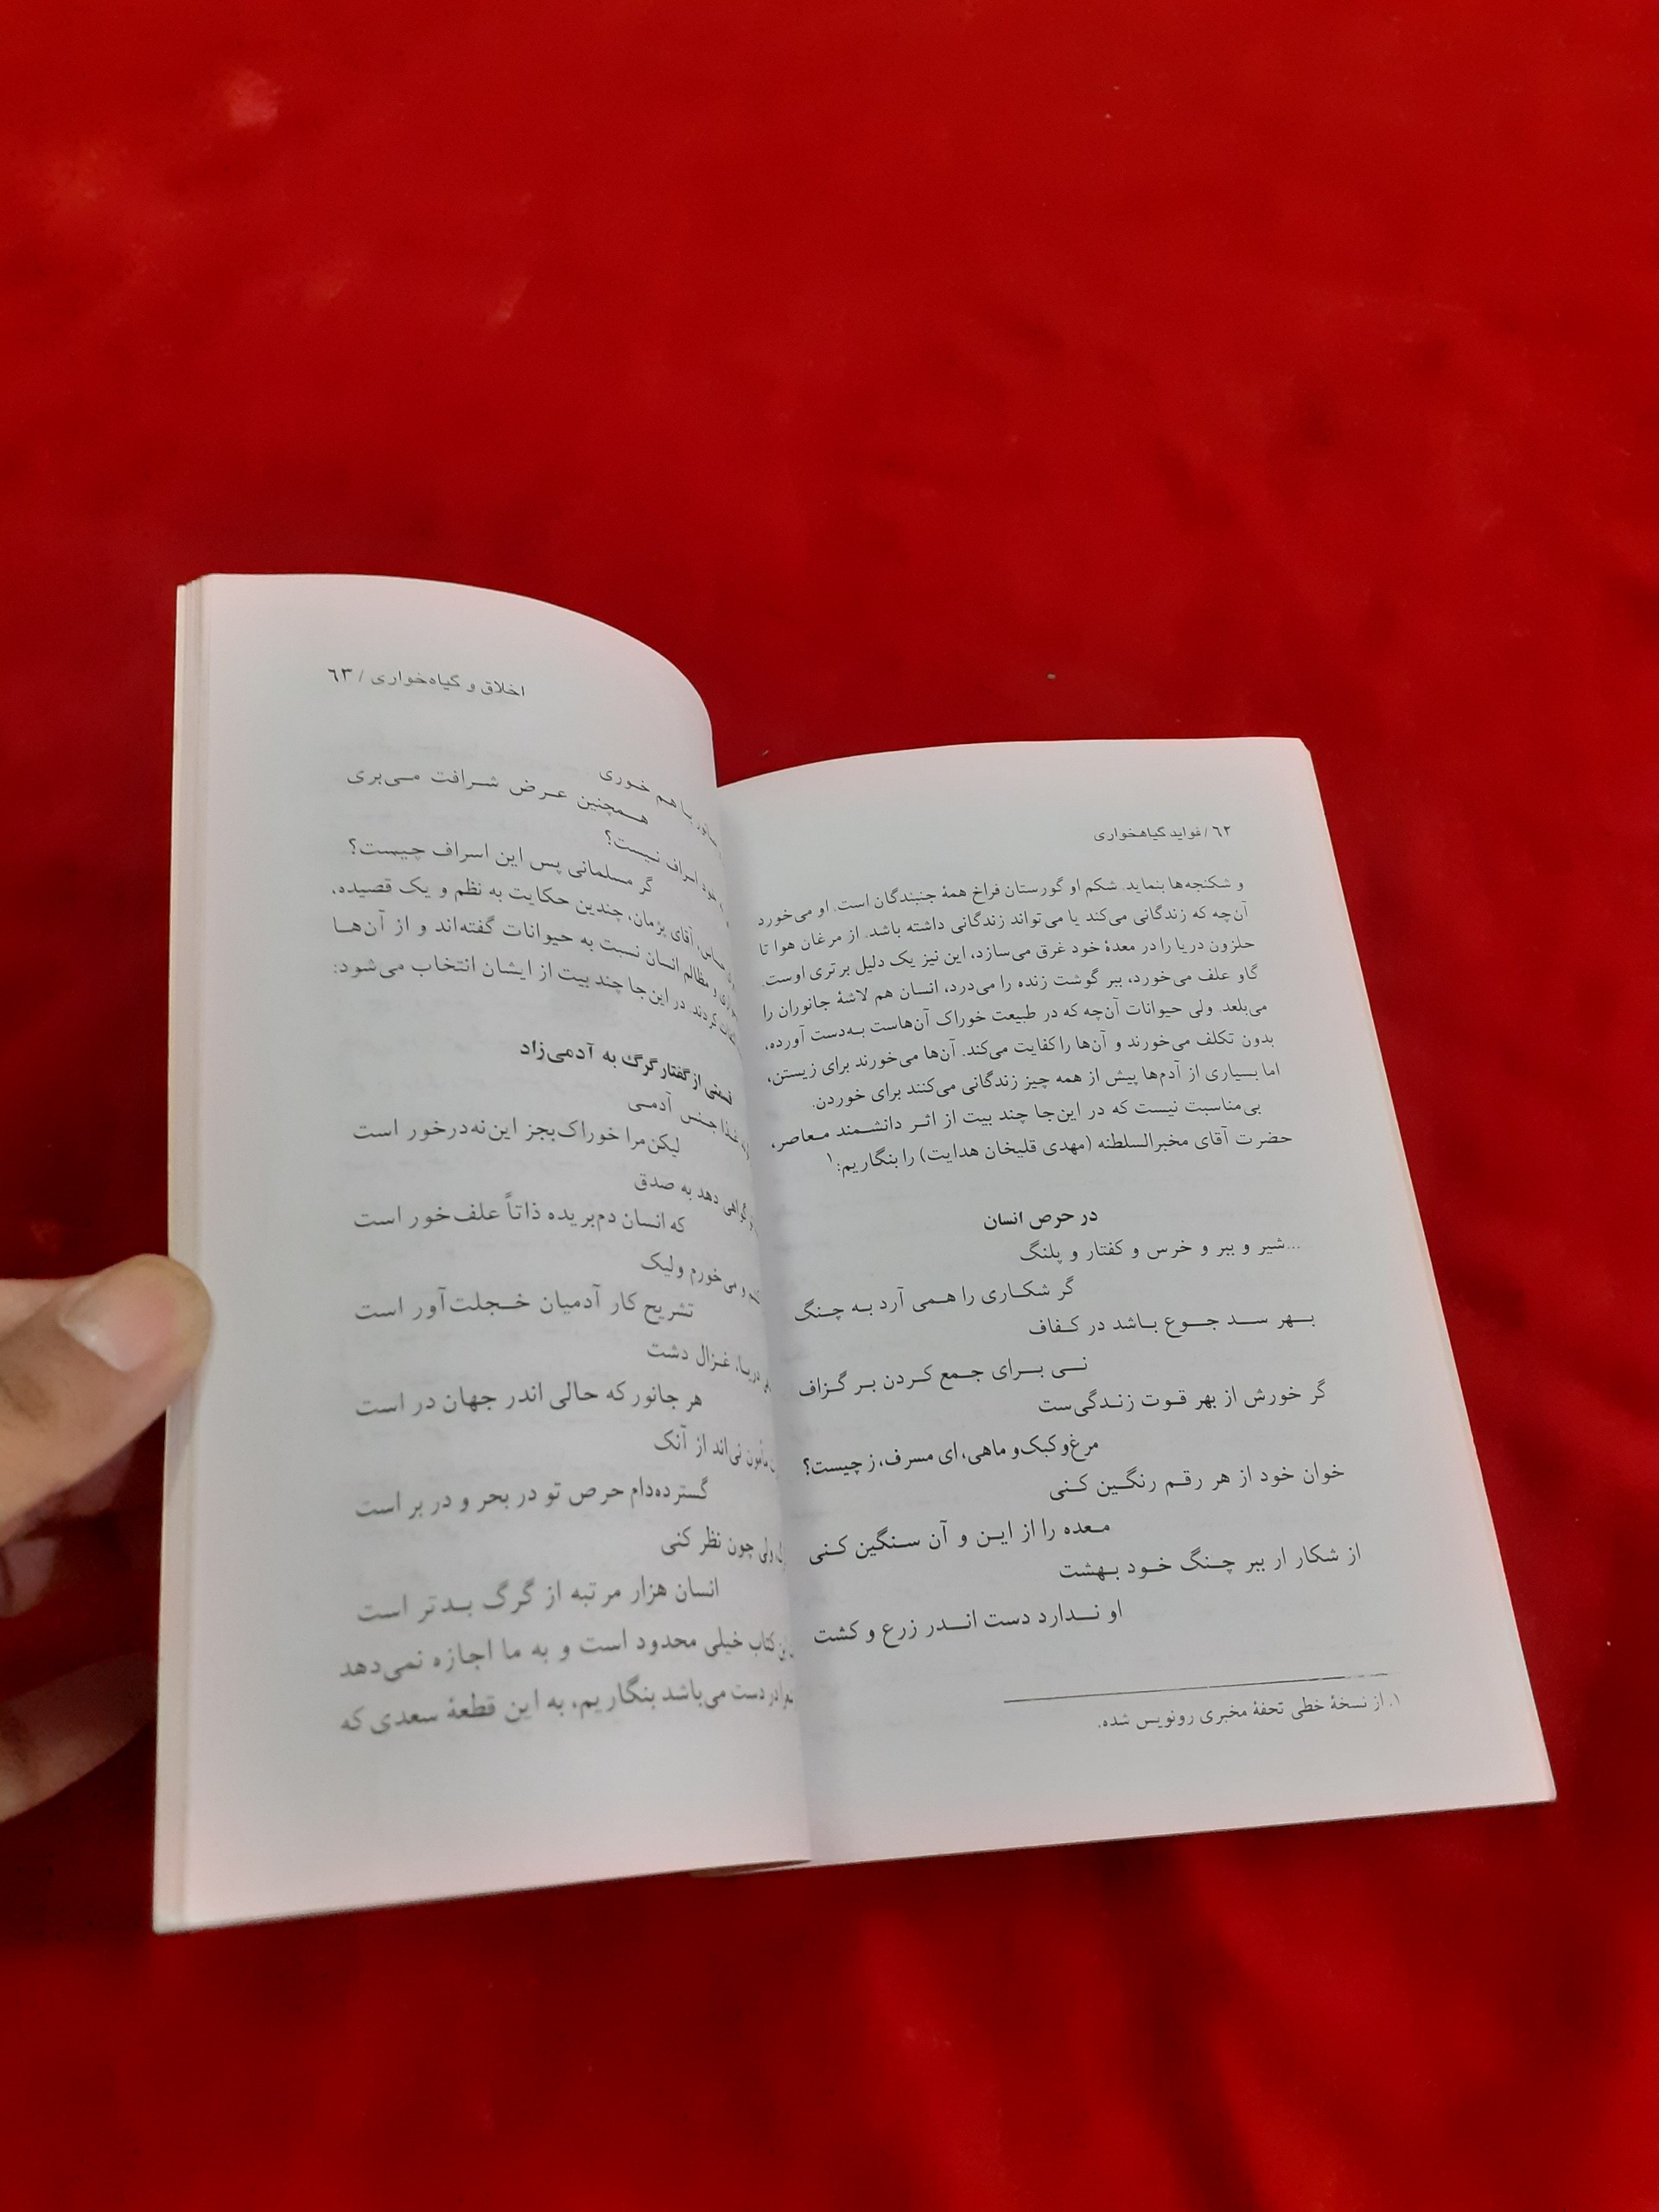 ٦٢ / فواید گیاهخواری
و شکنجه‌ها بنماید. شکم او گورستان فراخ همهٔ جنبندگان است. او می‌خورد
آن‌چه که زندگانی می‌کند یا می‌تواند زندگانی داشته باشد. از مرغان هوا تا
حلزون دریا را در معدهٔ خود غرق می‌سازد، این نیز یک دلیل برتری اوست.
گاو علف می‌خورد، ببر گوشت زنده را می‌درد، انسان هم لاشهٔ جانوران را
می‌بلعد. ولی حیوانات آن‌چه که در طبیعت خوراک آن‌هاست به‌دست آورده،
بدون تکلف می‌خورند و آن‌ها را کفایت می‌کند. آن‌ها می‌خورند برای زیستن،
اما بسیاری از آدم‌ها پیش از همه چیز زندگانی می‌کنند برای خوردن.
بی‌مناسبت نیست که در این‌جا چند بیت از اثر دانشمند معاصر،
حضرت آقای مخبرالسلطنه (مهدی قلیخان هدایت) را بنگاریم:۱
در حرص انسان
...شیر و ببر و خرس و کفتار و پلنگ
گر شکاری را همی آرد به چنگ
بهر سد جوع باشد در کفاف
نی برای جمع کردن بر گزاف
گر خورش از بهر قوت زندگی‌ست
مرغ و کبک و ماهی، ای مسرف، ز چیست؟
خوان خود از هر رقم رنگین کنی
معده را از این و آن سنگین کنی
از شکار ار ببر چنگ خود بهشت
او ندارد دست اندر زرع و کشت
۱. از نسخهٔ خطی تحفهٔ مخبری رونویس شده.
اخلاق و گیاه‌خواری / ٦٣
با هم خوری
همچنین عرض شرافت می‌بری
اسراف نیست؟
گر مسلمانی پس این اسراف چیست؟
آقای پژمان، چندین حکایت به نظم و یک قصیده،
و مظالم انسان نسبت به حیوانات گفته‌اند و از آن‌ها
کردند. در این‌جا چند بیت از ایشان انتخاب می‌شود:
قسمتی از گفتار گرگ به آدمی‌زاد
غذا جنس آدمی
لیکن مرا خوراک بجز این نه درخور است
گواهی دهد به صدق
که انسان دم‌بریده ذاتاً علف‌خور است
و می‌خورم ولیک
تشریح کار آدمیان خجلت‌آور است
دریا، غزال دشت
هر جانور که حالی اندر جهان در است
مأمون نی‌اند از آنک
گسترده دام حرص تو در بحر و در بر است
ولی چون نظر کنی
انسان هزار مرتبه از گرگ بدتر است
کتاب خیلی محدود است و به ما اجازه نمی‌دهد
در دست می‌باشد بنگاریم، به این قطعهٔ سعدی که